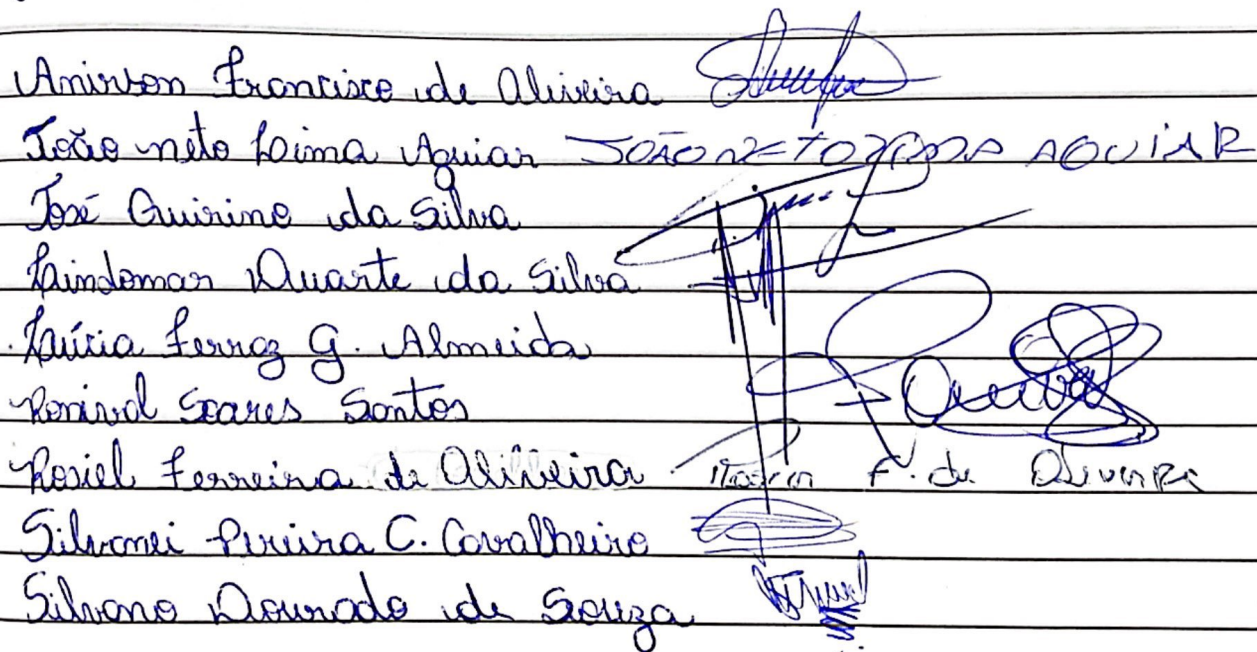 Anirson Francisco de Oliveira
João neto Lima Aguiar JOÃO NETO LIMA AGUIAR
José Quirino da Silva
Lindomar Duarte da Silva
Ferraz G. Almeida
Ronival Soares Santos
Rosiel Ferreira de Oliveira F. de Oliveira
Silvanei Pereira C. Cavalheiro
Silvano Dourado de Souza